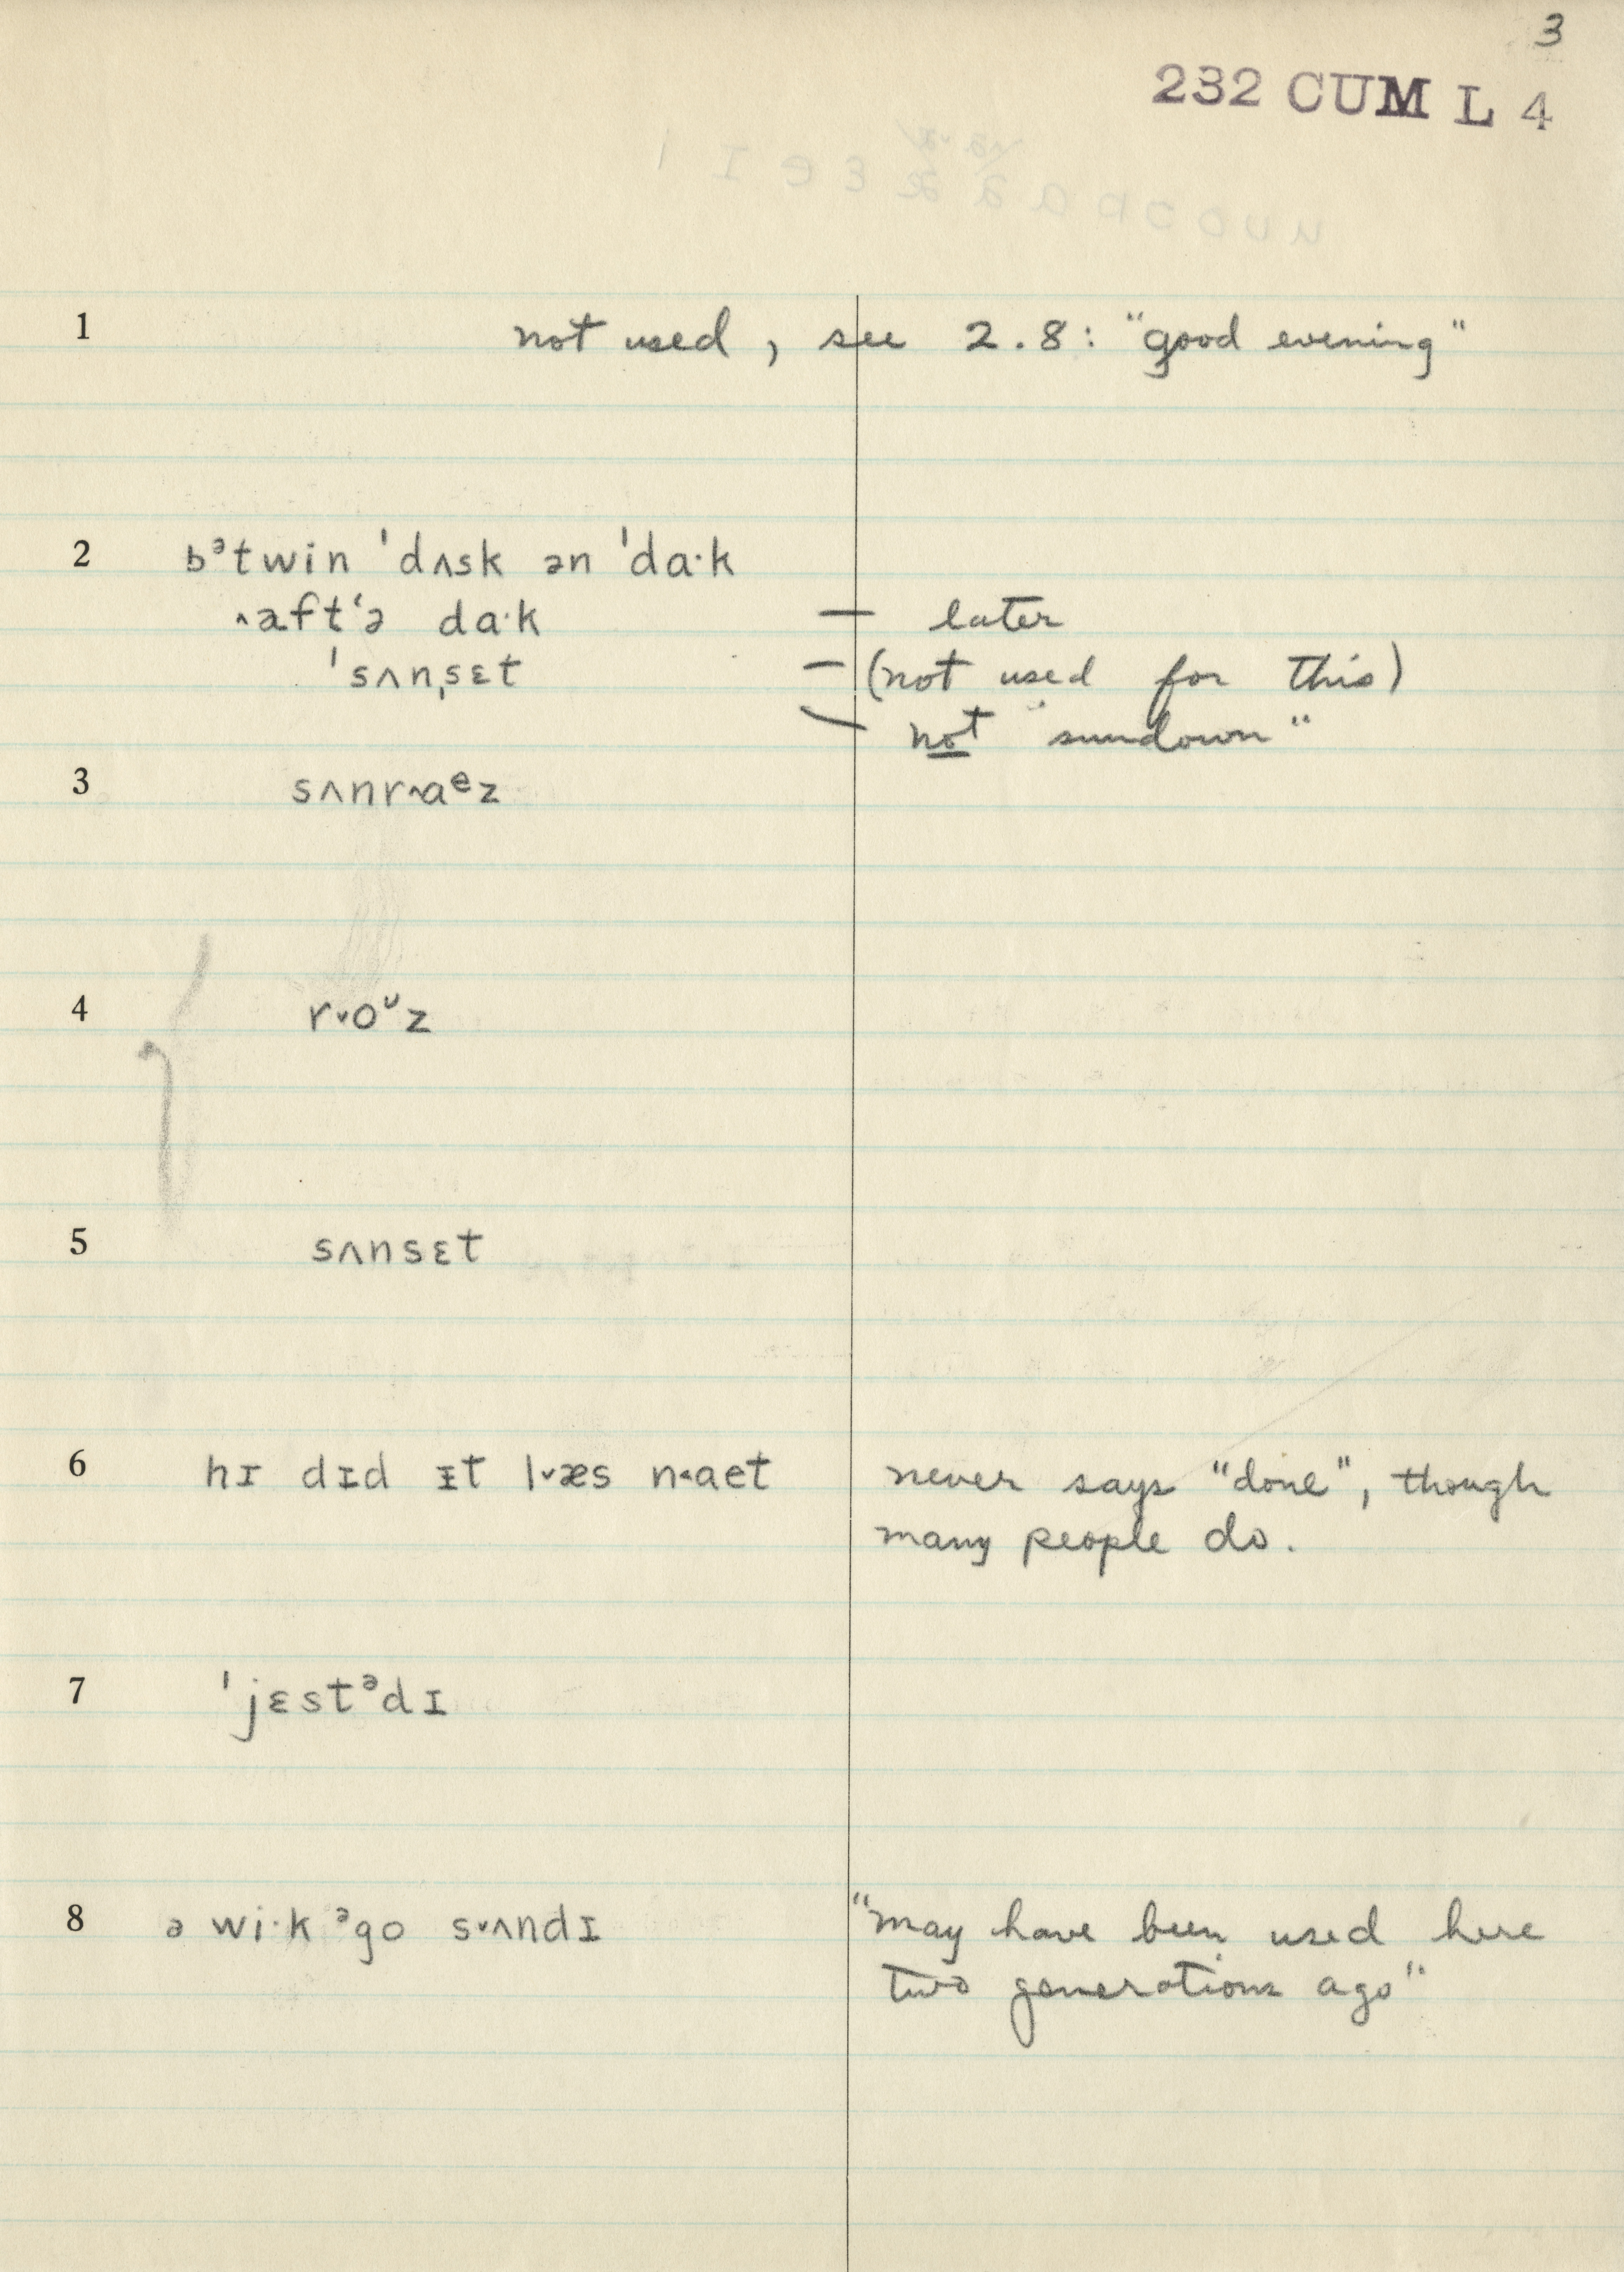 3
232 CUM L 4
1 not used, see 2.8: "good evening"
2 bᵊtwin ˈdʌsk ən ˈda·k
˄aftʻə da·k — later
ˈsʌnˌsɛt — (not used for this)
— not "sundown"
3 sʌnr˄aᵉz
4 r˅oᶸz
5 sʌnsɛt
6 hɪ dɪd ɪt l˅æs n˂aet never says "done", though
many people do.
7 ˈjɛstᵊdɪ
8 ə wi·k ᵊgo s˅ʌndɪ "may have been used here
two generations ago"